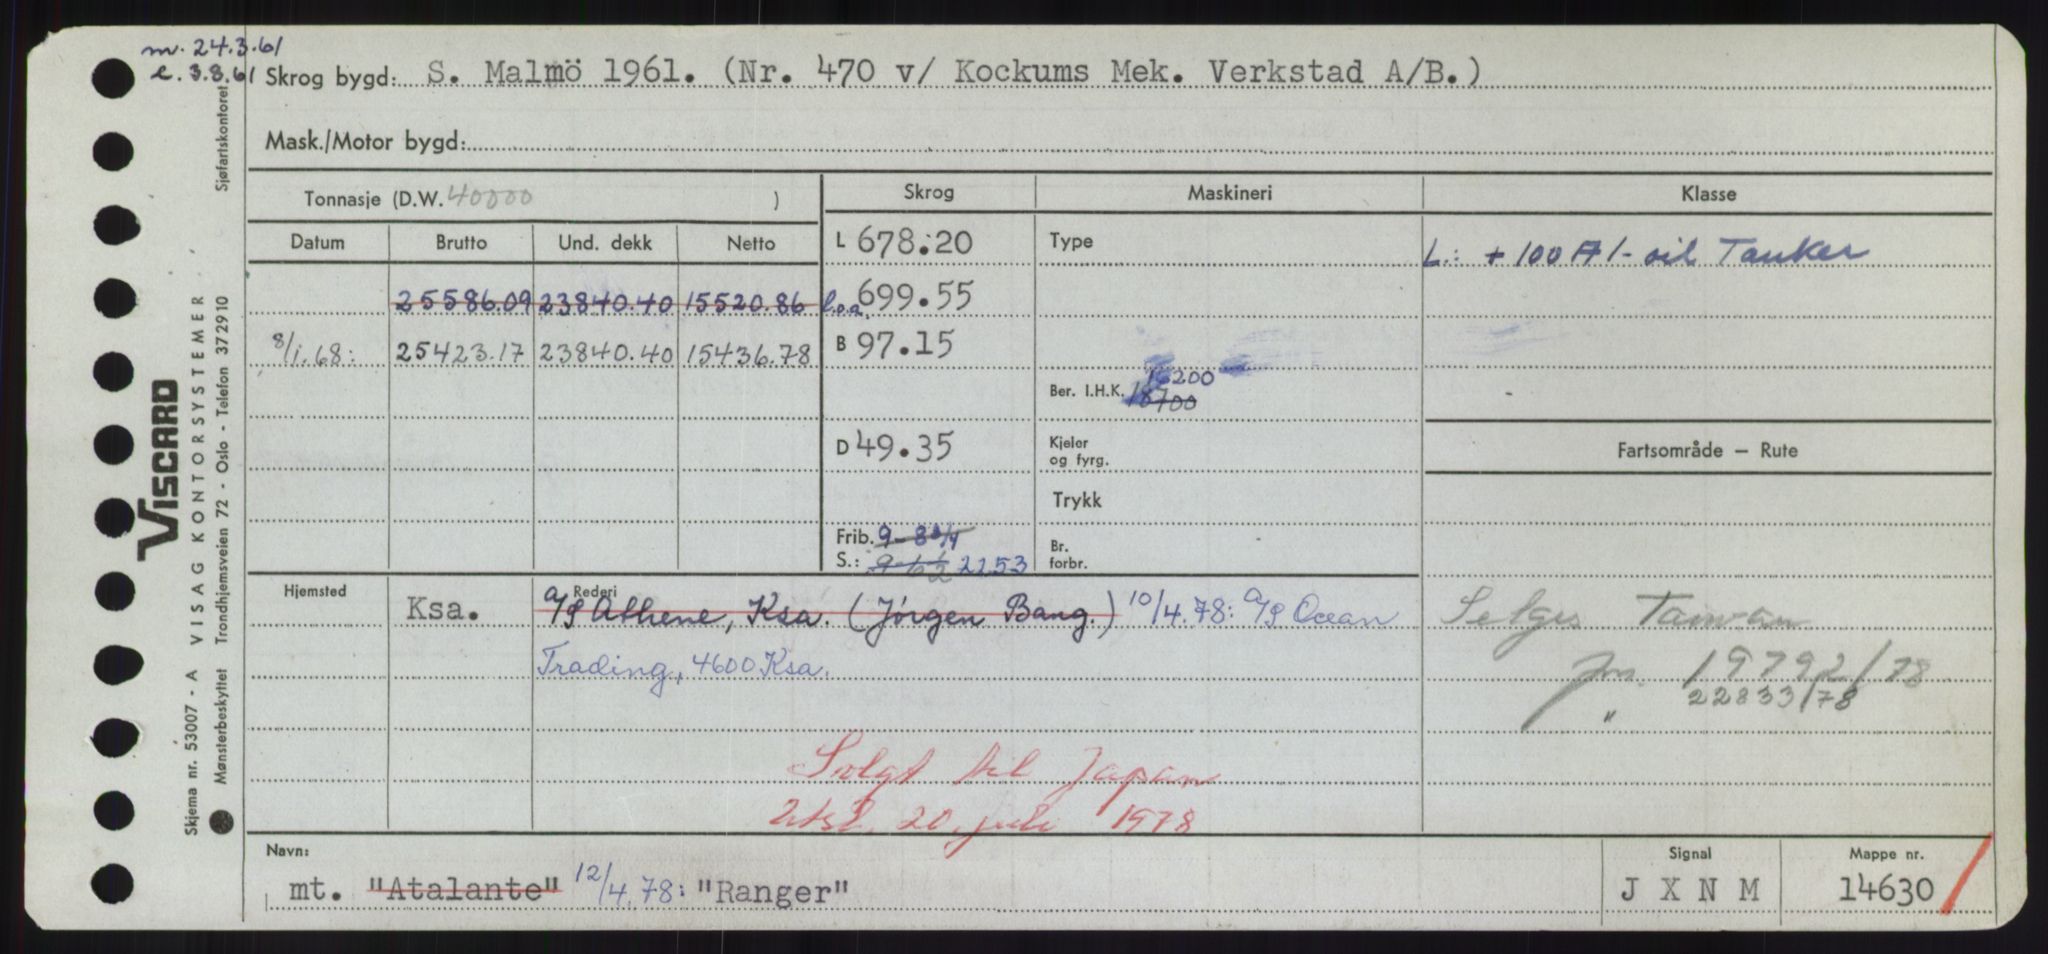 m. 24.3.61
e. 3.8.61
Skrog bygd: S. Malmö 1961. (Nr. 470 v/ Kockums Mek. Verkstad A/B.)
Mask./Motor bygd:
Tonnasje (D.W. 40000 )
Skrog Maskineri Klasse
Datum Brutto Und. dekk Netto
L 678.20 Type L.: + 100 A 1 - oil Tanker
25586.09 23840.40 15520.86 l.o.a. 699.55
8/1.68: 25423.17 23840.40 15436.78 B 97.15
16200
Ber. I.H.K. 18700
D 49.35 Kjeler og fyrg. Fartsområde — Rute
Trykk
Frib. 9-8 3/4 Br. forbr.
S.: 9-6 1/2 2253
Hjemsted Rederi
Ksa. A/S Athene, Ksa. (Jörgen Bang.) 10/4.78: A/S Ocean
Trading, 4600 Ksa.
Selges Taiwan
Jnr. 19792/78
" 22833/78
Solgt til Japan
Utsl. 20. juli 1978
Navn: Signal Mappe nr.
mt. "Atalante" 12/4.78: "Ranger" J X N M 14630
VISCARD
Skjema nr. 53007 - A VISAG KONTORSYSTEMER
Mønsterbeskyttet Trondhjemsveien 72 - Oslo - Telefon 372910 Sjøfartskontoret